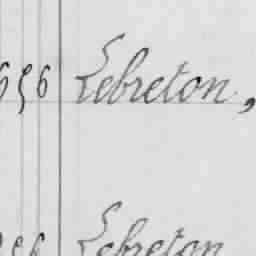 656 Lebreton,
656 Lebreton